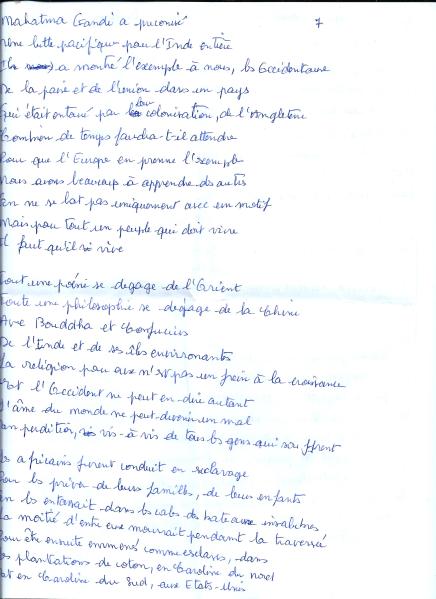 7
Mahatma Gandi a préconisé
une lutte pacifique pour l'Inde entière
Il a montré l'exemple à nous, les Occidentaux
De la paix et de l'union dans un pays
Qui était entaué par la colonisation, de l'Angleterre
Combien de temps faudra-t-il attendre
Pour que l'Europe en prenne l'exemple
Nous avons beaucoup à apprendre des autres
On ne se bat pas uniquement avec un motif
Mais pour tout un peuple qui doit vivre
Il faut qu'il vive
Tout une poésie se degage de l'Orient
Toute une philosophie se degage de la Chine
Avec Bouddha et Confucius
De l'Inde et de ses îles environnants
La religion pour eux n'est pas un frein à la croissance
Et l'Occident ne peut en-dire autant
L'âme du monde ne peut-devenir un mal
en perdition, vis-à vis de tous les gens qui souffrent
Les africains furent conduit en esclavage
Pour les priver de leurs familles, de leurs enfants
On les entassait dans les cales des bateaux insalubres
La moitié d'entre eux mourrait pendant la traversée
Pour être ensuite emmenés comme esclaves, dans
les plantations de coton, en Caroline du nord
et en Caroline du Sud, aux Etats-Unis